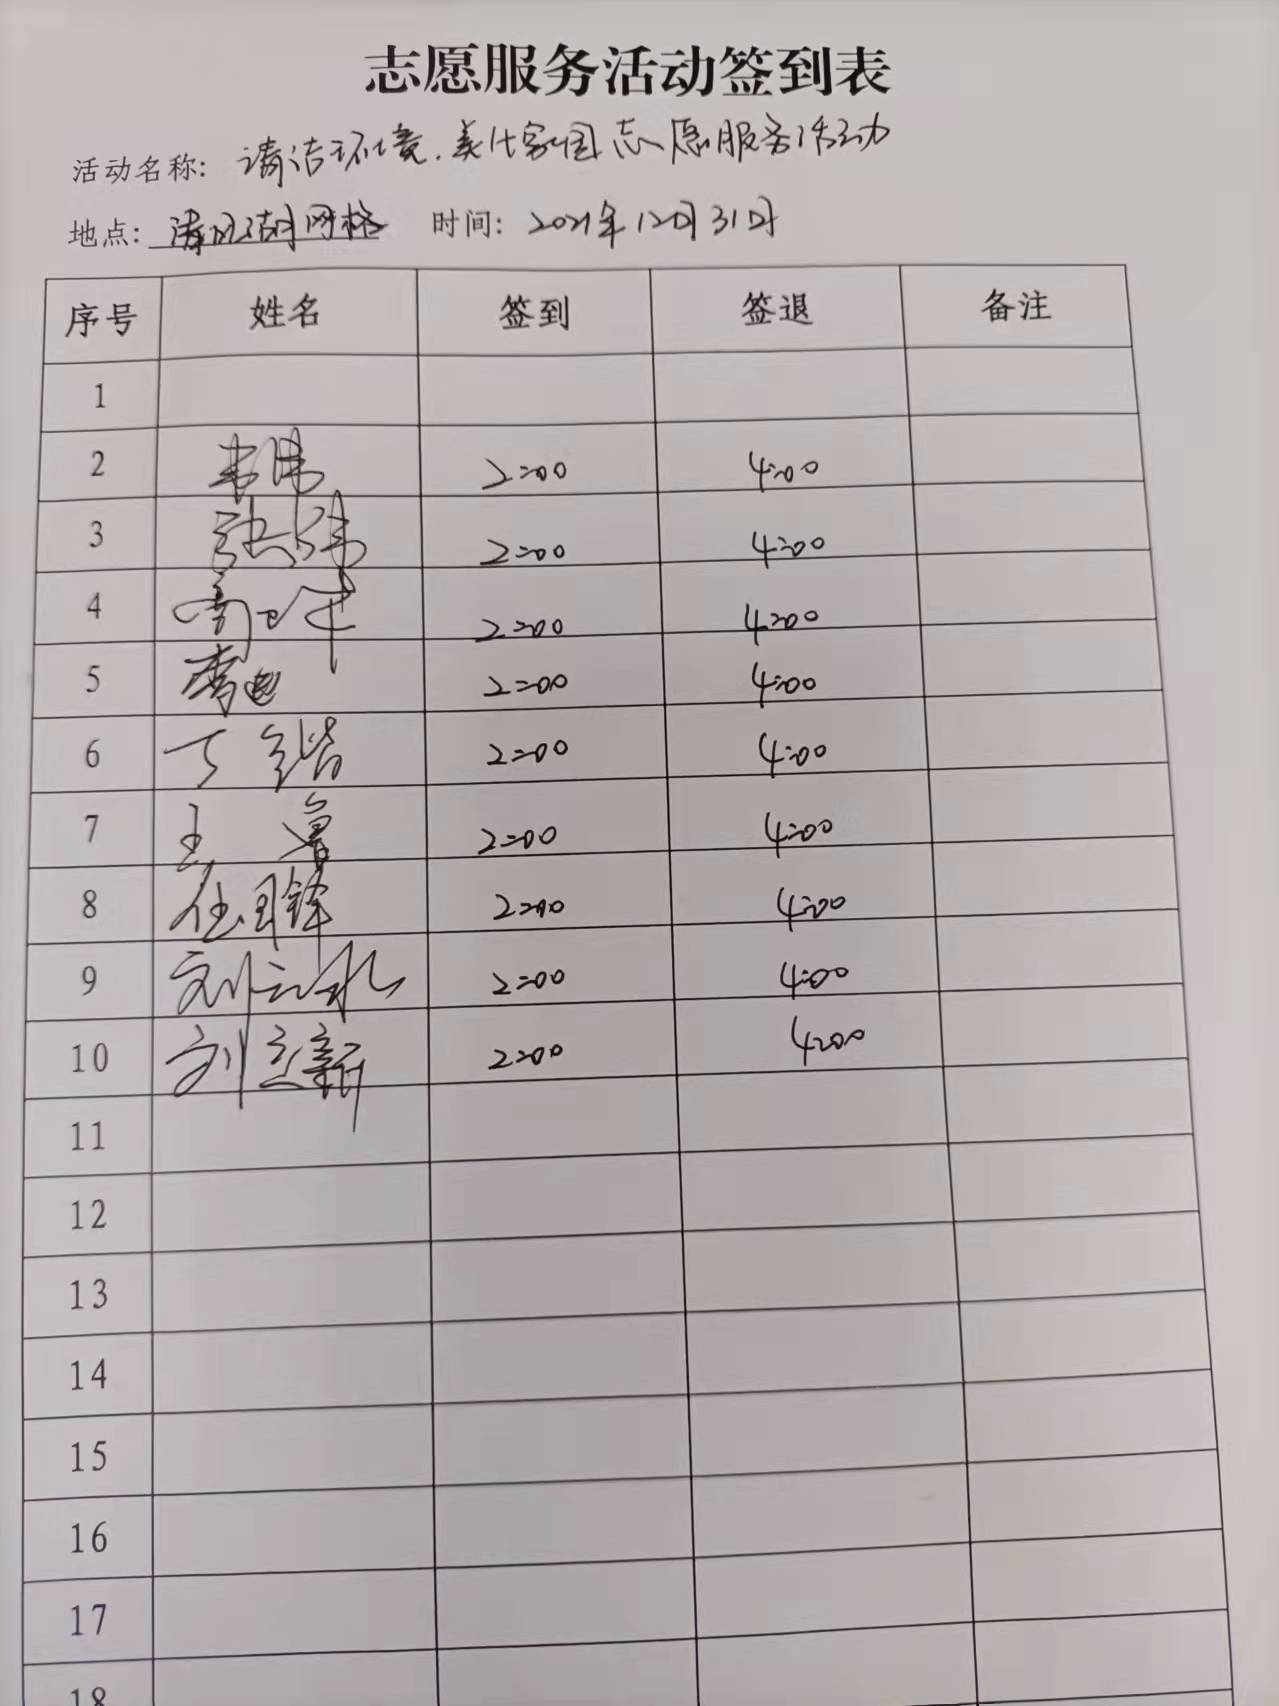 志愿服务活动签到表
活动名称: 清洁环境.美化家园志愿服务活动
地点: 清风湖网格 时间: 2021年12月31日
序号 姓名 签到 签退 备注
1
2 韦伟 2:00 4:00
3 张伟 2:00 4:00
4 2:00 4:00
5 李 2:00 4:00
6 丁锴 2:00 4:00
7 王鲁 2:00 4:00
8 任国锋 2:00 4:00
9 刘立 2:00 4:00
10 刘立新 2:00 4:00
11
12
13
14
15
16
17
18